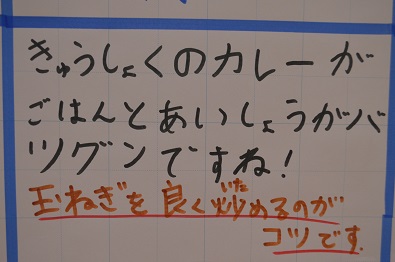 きゅうしょくのカレーが
ごはんとあいしょうがバ
ツグンですね!
玉ねぎを良く炒めるのが
コツです.